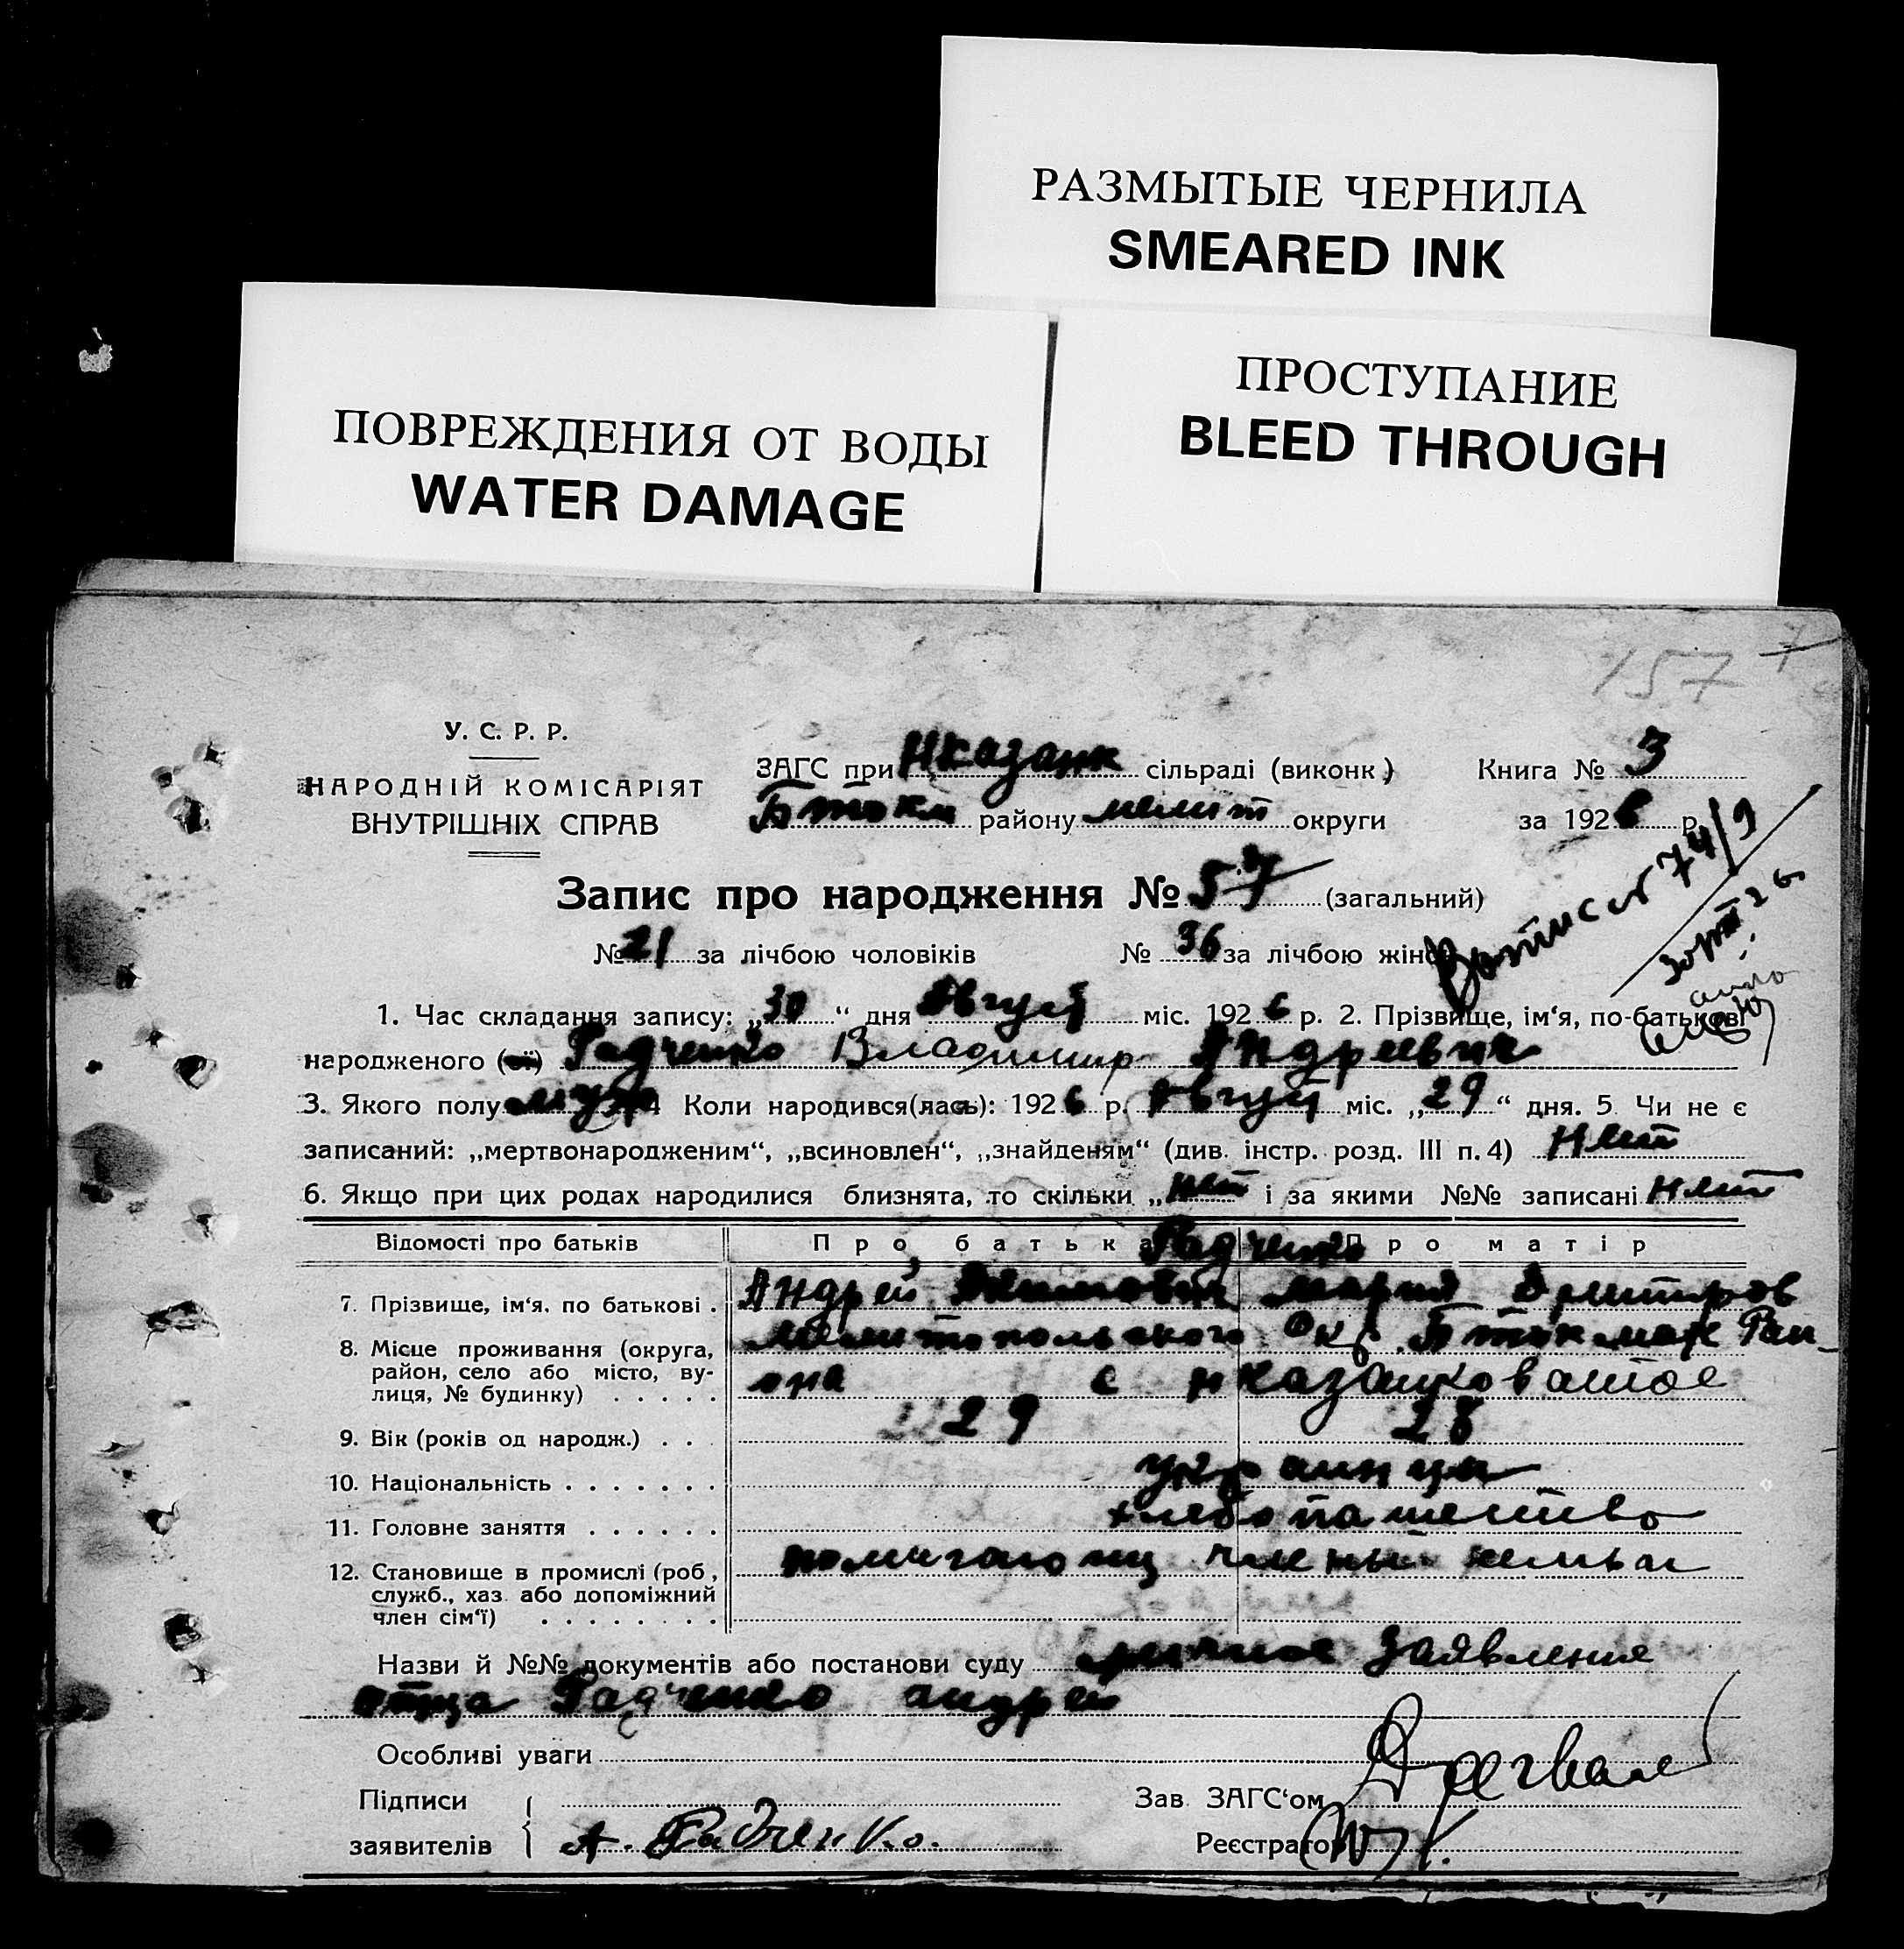 РАЗМЫТЫЕ ЧЕРНИЛА
SMEARED INK
ПОВРЕЖДЕНИЯ ОТ ВОДЫ
WATER DAMAGE
ПРОСТУПАНИЕ
BLEED THROUGH
157 7
У. С. Р. Р.
НАРОДНІЙ КОМІСАРІЯТ
ВНУТРІШНІХ СПРАВ
ЗАГС при Нказанк сільраді (виконк.) Книга № 3
Бтокм району мелит округи за 1926 р.
Запис про народження № 57 (загальний)
№ 21 за лічбою чоловіків № 36 за лічбою жінок
1. Час складання запису: „30“ дня Август міс. 1926 р. 2. Прізвище, ім‘я, по-батькові
народженого (ої) Радченко Владимир Андреевич
3. Якого полу муж 4 Коли народився(лась): 1926 р. Август міс. „29“ дня. 5 Чи не є
записаний: „мертвонародженим“, „всиновлен“, „знайденям“ (див. інстр. розд. III п. 4) Нет
6. Якщо при цих родах народилися близнята, то скільки „нет і за якими №№ записані Нет
Відомості про батьків Про батька Радченко Про матір
7. Прізвище, ім‘я, по батькові . Андрей Мария Дмитров
8. Місце проживання (округа, район, село або місто, вулиця, № будинку) . . . . . Мелитопольского Окр. Бтокмак Рай-
она с нказанковатое
9. Вік (років од народж.) . . . 29 28
10. Національність . . . . . . . украинцы
11. Головне заняття . . . . . . хлебопашество
12. Становище в промислі (роб., служб., хаз. або допоміжний член сім‘ї) . . . . . . . . члены семьи
Назви й №№ документів або постанови суду заявление
отца Радченко андрей
Особливі уваги
Підписи
заявителів А. Радченко.
Зав. ЗАГС‘ом
Реєстратор